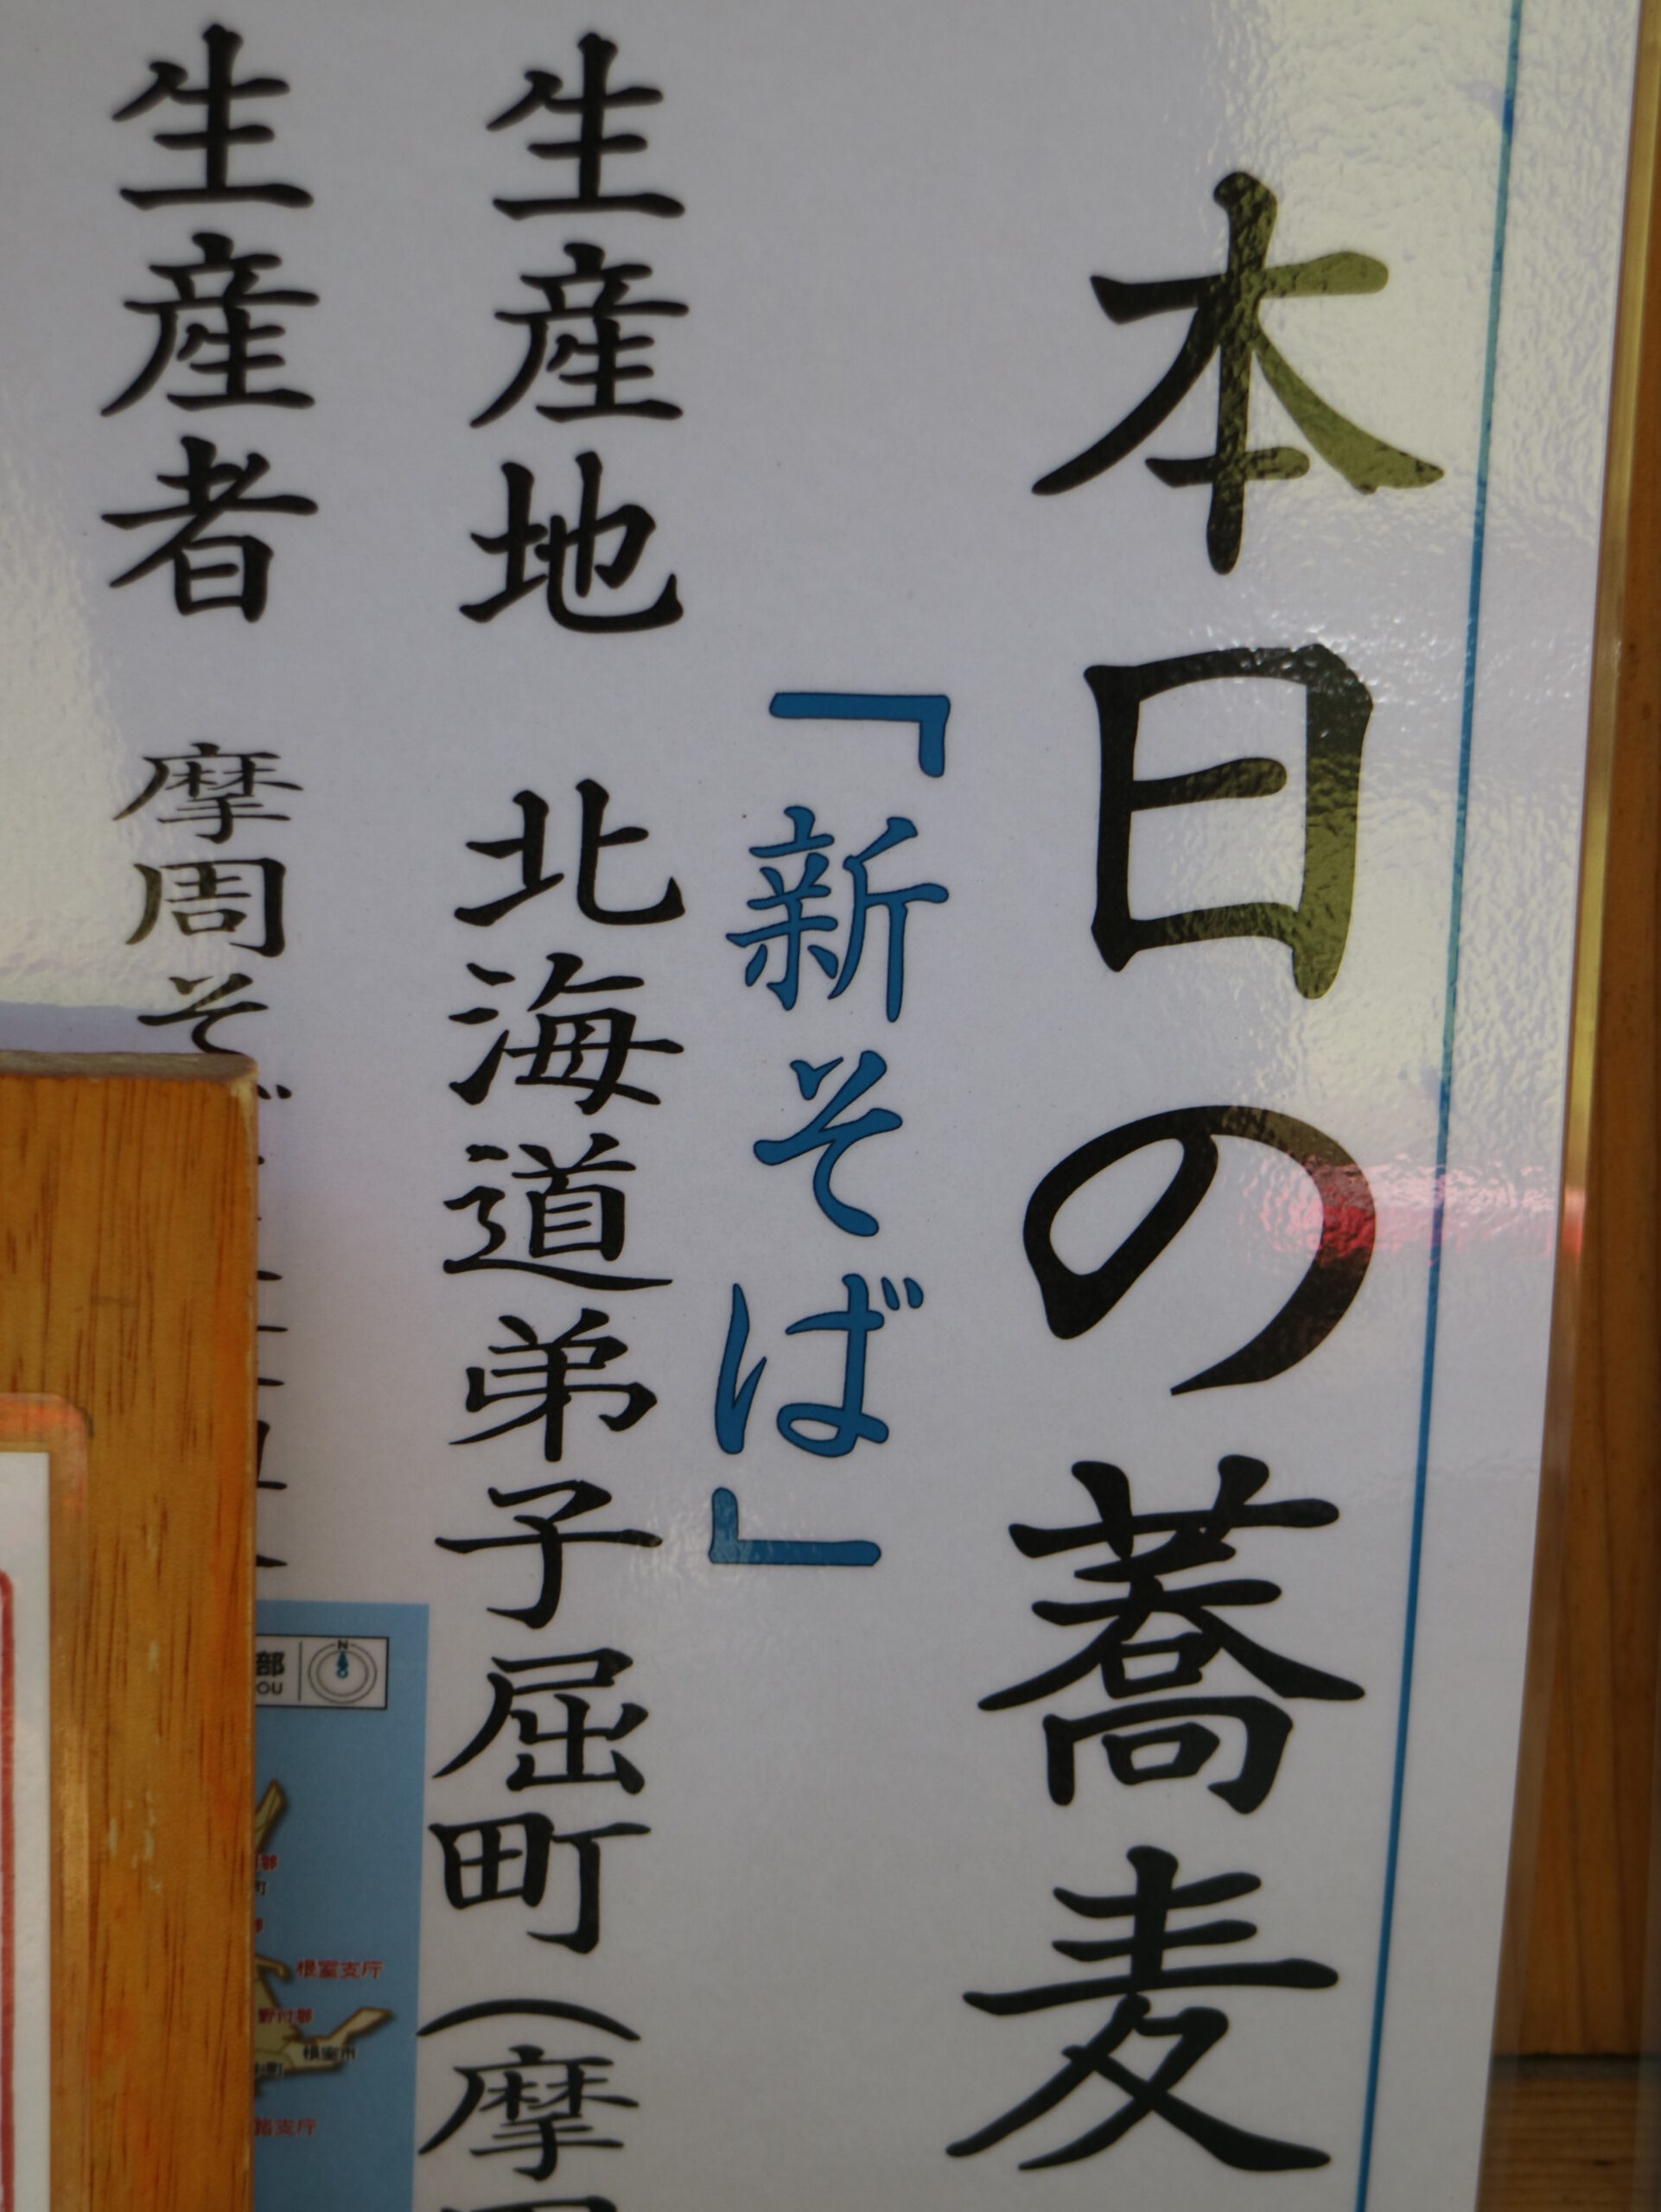 本日の蕎麦
「新そば」
生産地 北海道弟子屈町(摩
生産者 摩周そば
部
OU
N
根室支庁
野付郡
根室市